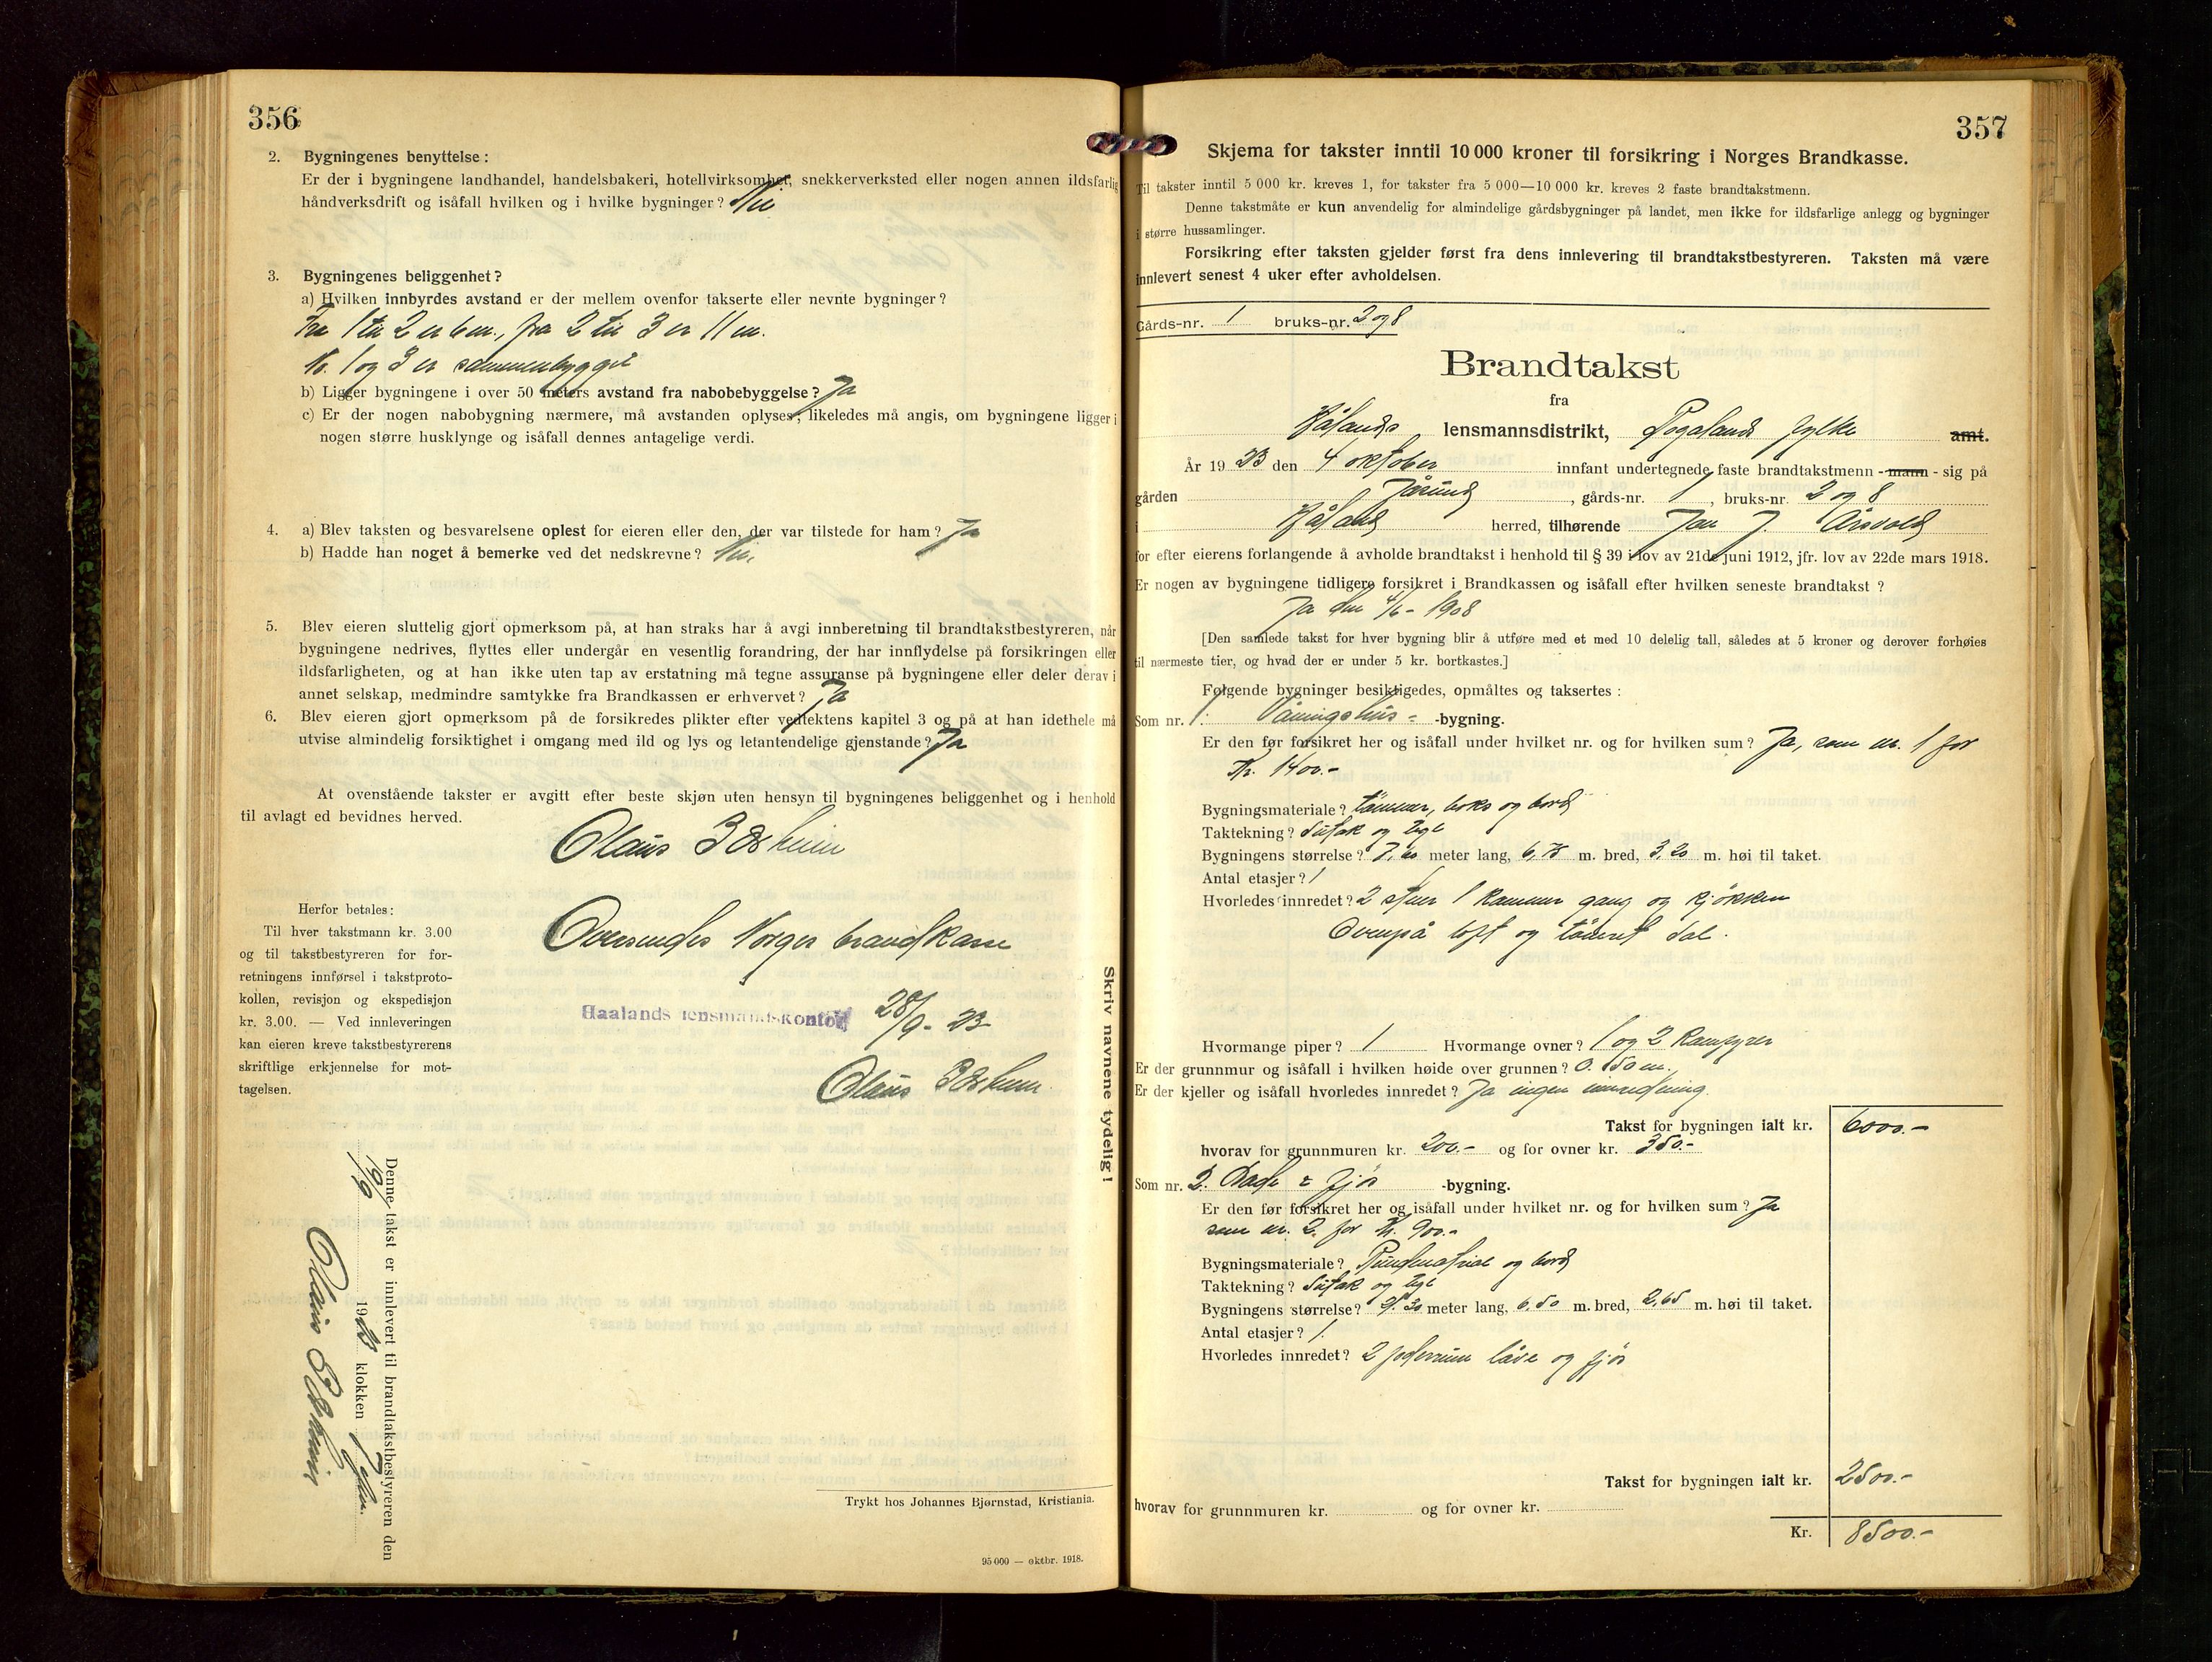 356
2. Bygningenes benyttelse:
Er der i bygningene landhandel, handelsbakeri, hotellvirksomhet, snekkerverksted eller nogen annen ildsfarlig
håndverksdrift og isåfall hvilken og i hvilke bygninger? Nei
3. Bygningenes beliggenhet?
a) Hvilken innbyrdes avstand er der mellem ovenfor takserte eller nevnte bygninger?
Fra 1 til 2 er 6 m., fra 2 til 3 er 11 m.
N. 1 og 3 er sammenbygget
b) Ligger bygningene i over 50 meters avstand fra nabobebyggelse? Ja
c) Er der nogen nabobygning nærmere, må avstanden oplyses; likeledes må angis, om bygningene ligger i
nogen større husklynge og isåfall dennes antagelige verdi.
4. a) Blev taksten og besvarelsene oplest for eieren eller den, der var tilstede for ham? Ja
b) Hadde han noget å bemerke ved det nedskrevne? Nei.
5. Blev eieren sluttelig gjort opmerksom på, at han straks har å avgi innberetning til brandtakstbestyreren, når
bygningene nedrives, flyttes eller undergår en vesentlig forandring, der har innflydelse på forsikringen eller
ildsfarligheten, og at han ikke uten tap av erstatning må tegne assuranse på bygningene eller deler derav i
annet selskap, medmindre samtykke fra Brandkassen er erhvervet? Ja
6. Blev eieren gjort opmerksom på de forsikredes plikter efter vedtektens kapitel 3 og på at han idethele må
utvise almindelig forsiktighet i omgang med ild og lys og letantendelige gjenstande? Ja
At ovenstående takster er avgitt efter beste skjøn uten hensyn til bygningenes beliggenhet og i henhold
til avlagt ed bevidnes herved.
Olaus Edsheim
Herfor betales:
Til hver takstmann kr. 3.00
og til takstbestyreren for for-
retningens innførsel i takstproto-
kollen, revisjon og ekspedisjon
kr. 3.00. — Ved innleveringen
kan eieren kreve takstbestyrerens
skriftlige erkjennelse for mot-
tagelsen.
Oversendes Norges brandkasse
Haalands lensmandskontor 28/9- 23
Olaus Edsheim
Denne takst er innlevert til brandtakstbestyreren den
19/9 1923 klokken 1 efm.
Olaus Edsheim
Skriv navnene tydelig!
Trykt hos Johannes Bjørnstad, Kristiania.
95 000 — oktbr. 1918.
357
Skjema for takster inntil 10 000 kroner til forsikring i Norges Brandkasse.
Til takster inntil 5 000 kr. kreves 1, for takster fra 5 000—10 000 kr. kreves 2 faste brandtakstmenn.
Denne takstmåte er kun anvendelig for almindelige gårdsbygninger på landet, men ikke for ildsfarlige anlegg og bygninger
i større hussamlinger.
Forsikring efter taksten gjelder først fra dens innlevering til brandtakstbestyreren. Taksten må være
innlevert senest 4 uker efter avholdelsen.
Gårds-nr. 1 bruks-nr. 2 og 8
Brandtakst
fra
Hålands lensmannsdistrikt, Rogalands fylke amt.
År 19 23 den 4 oktober innfant undertegnede faste brandtakstmenn - mann - sig på
gården Jåsund, gårds-nr. 1, bruks-nr. 2 og 8
i Håland herred, tilhørende Jan J. Årsvold
for efter eierens forlangende å avholde brandtakst i henhold til § 39 i lov av 21de juni 1912, jfr. lov av 22de mars 1918.
Er nogen av bygningene tidligere forsikret i Brandkassen og isåfall efter hvilken seneste brandtakst?
Ja den 4/6- 1908
[Den samlede takst for hver bygning blir å utføre med et med 10 delelig tall, således at 5 kroner og derover forhøies
til nærmeste tier, og hvad der er under 5 kr. bortkastes.]
Følgende bygninger besiktigedes, opmåltes og taksertes:
Som nr. 1. Våningshus- -bygning.
Er den før forsikret her og isåfall under hvilket nr. og for hvilken sum? Ja, som nr. 1 for
Kr. 1400.-
Bygningsmateriale? tømmer, boks og bord
Taktekning? Sutak og tegl
Bygningens størrelse? 7,60 meter lang, 6,75 m. bred, 3,20 m. høi til taket.
Antal etasjer? 1
Hvorledes innredet? 2 stuer 1 kammer gang og kjøkken
Ovenpå loft og tømret sal.
Hvormange piper? 1 Hvormange ovner? 1 og 2 Kampyrer
Er der grunnmur og isåfall i hvilken høide over grunnen? 0.50 m.
Er der kjeller og isåfall hvorledes innredet? Ja ingen innredning.
Takst for bygningen ialt kr. 6000.-
hvorav for grunnmuren kr. 200.- og for ovner kr. 350.-
Som nr. 2. Lade & fjøs -bygning.
Er den før forsikret her og isåfall under hvilket nr. og for hvilken sum? Ja
som nr. 2. for Kr. 900.-
Bygningsmateriale? og bord
Taktekning? Sutak og tegl
Bygningens størrelse? meter lang, 6,50 m. bred, 2,65 m. høi til taket.
Antal etasjer? 1.
Hvorledes innredet? 2 foderrum låve og fjøs
Takst for bygningen ialt kr. 2500.-
hvorav for grunnmuren kr. og for ovner kr.
Kr. 8500.-